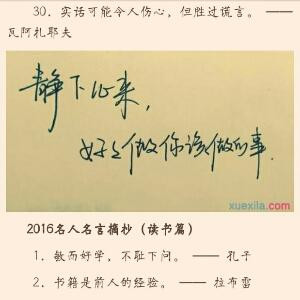 30. 实话可能令人伤心，但胜过谎言。 ——
瓦阿扎耶夫
静下心来，
好好做你该做的事.
xuexila.com
2016名人名言摘抄（读书篇）
1. 敏而好学，不耻下问。 —— 孔子
2. 书籍是前人的经验。 —— 拉布雷